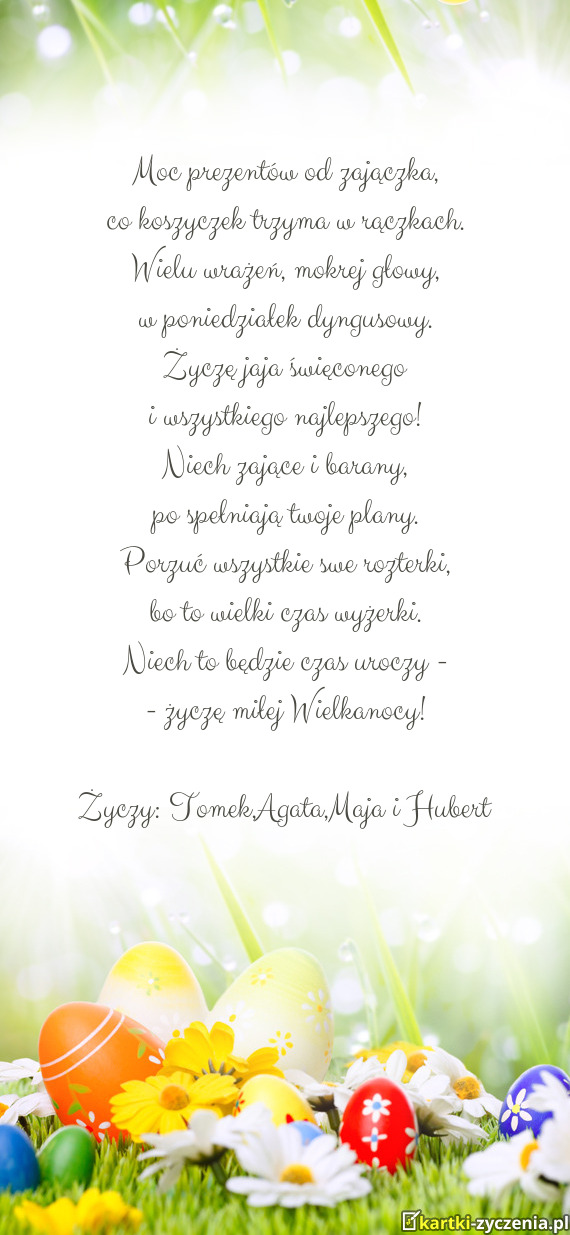 Moc prezentów od zajączka,
co koszyczek trzyma w rączkach.
Wielu wrażeń, mokrej głowy,
w poniedziałek dyngusowy.
Życzę jaja święconego
i wszystkiego najlepszego!
Niech zające i barany,
po spełniają twoje plany.
Porzuć wszystkie swe rozterki,
bo to wielki czas wyżerki.
Niech to będzie czas uroczy -
- życzę miłej Wielkanocy!
Życzy: Tomek,Agata,Maja i Hubert
kartki-zyczenia.pl